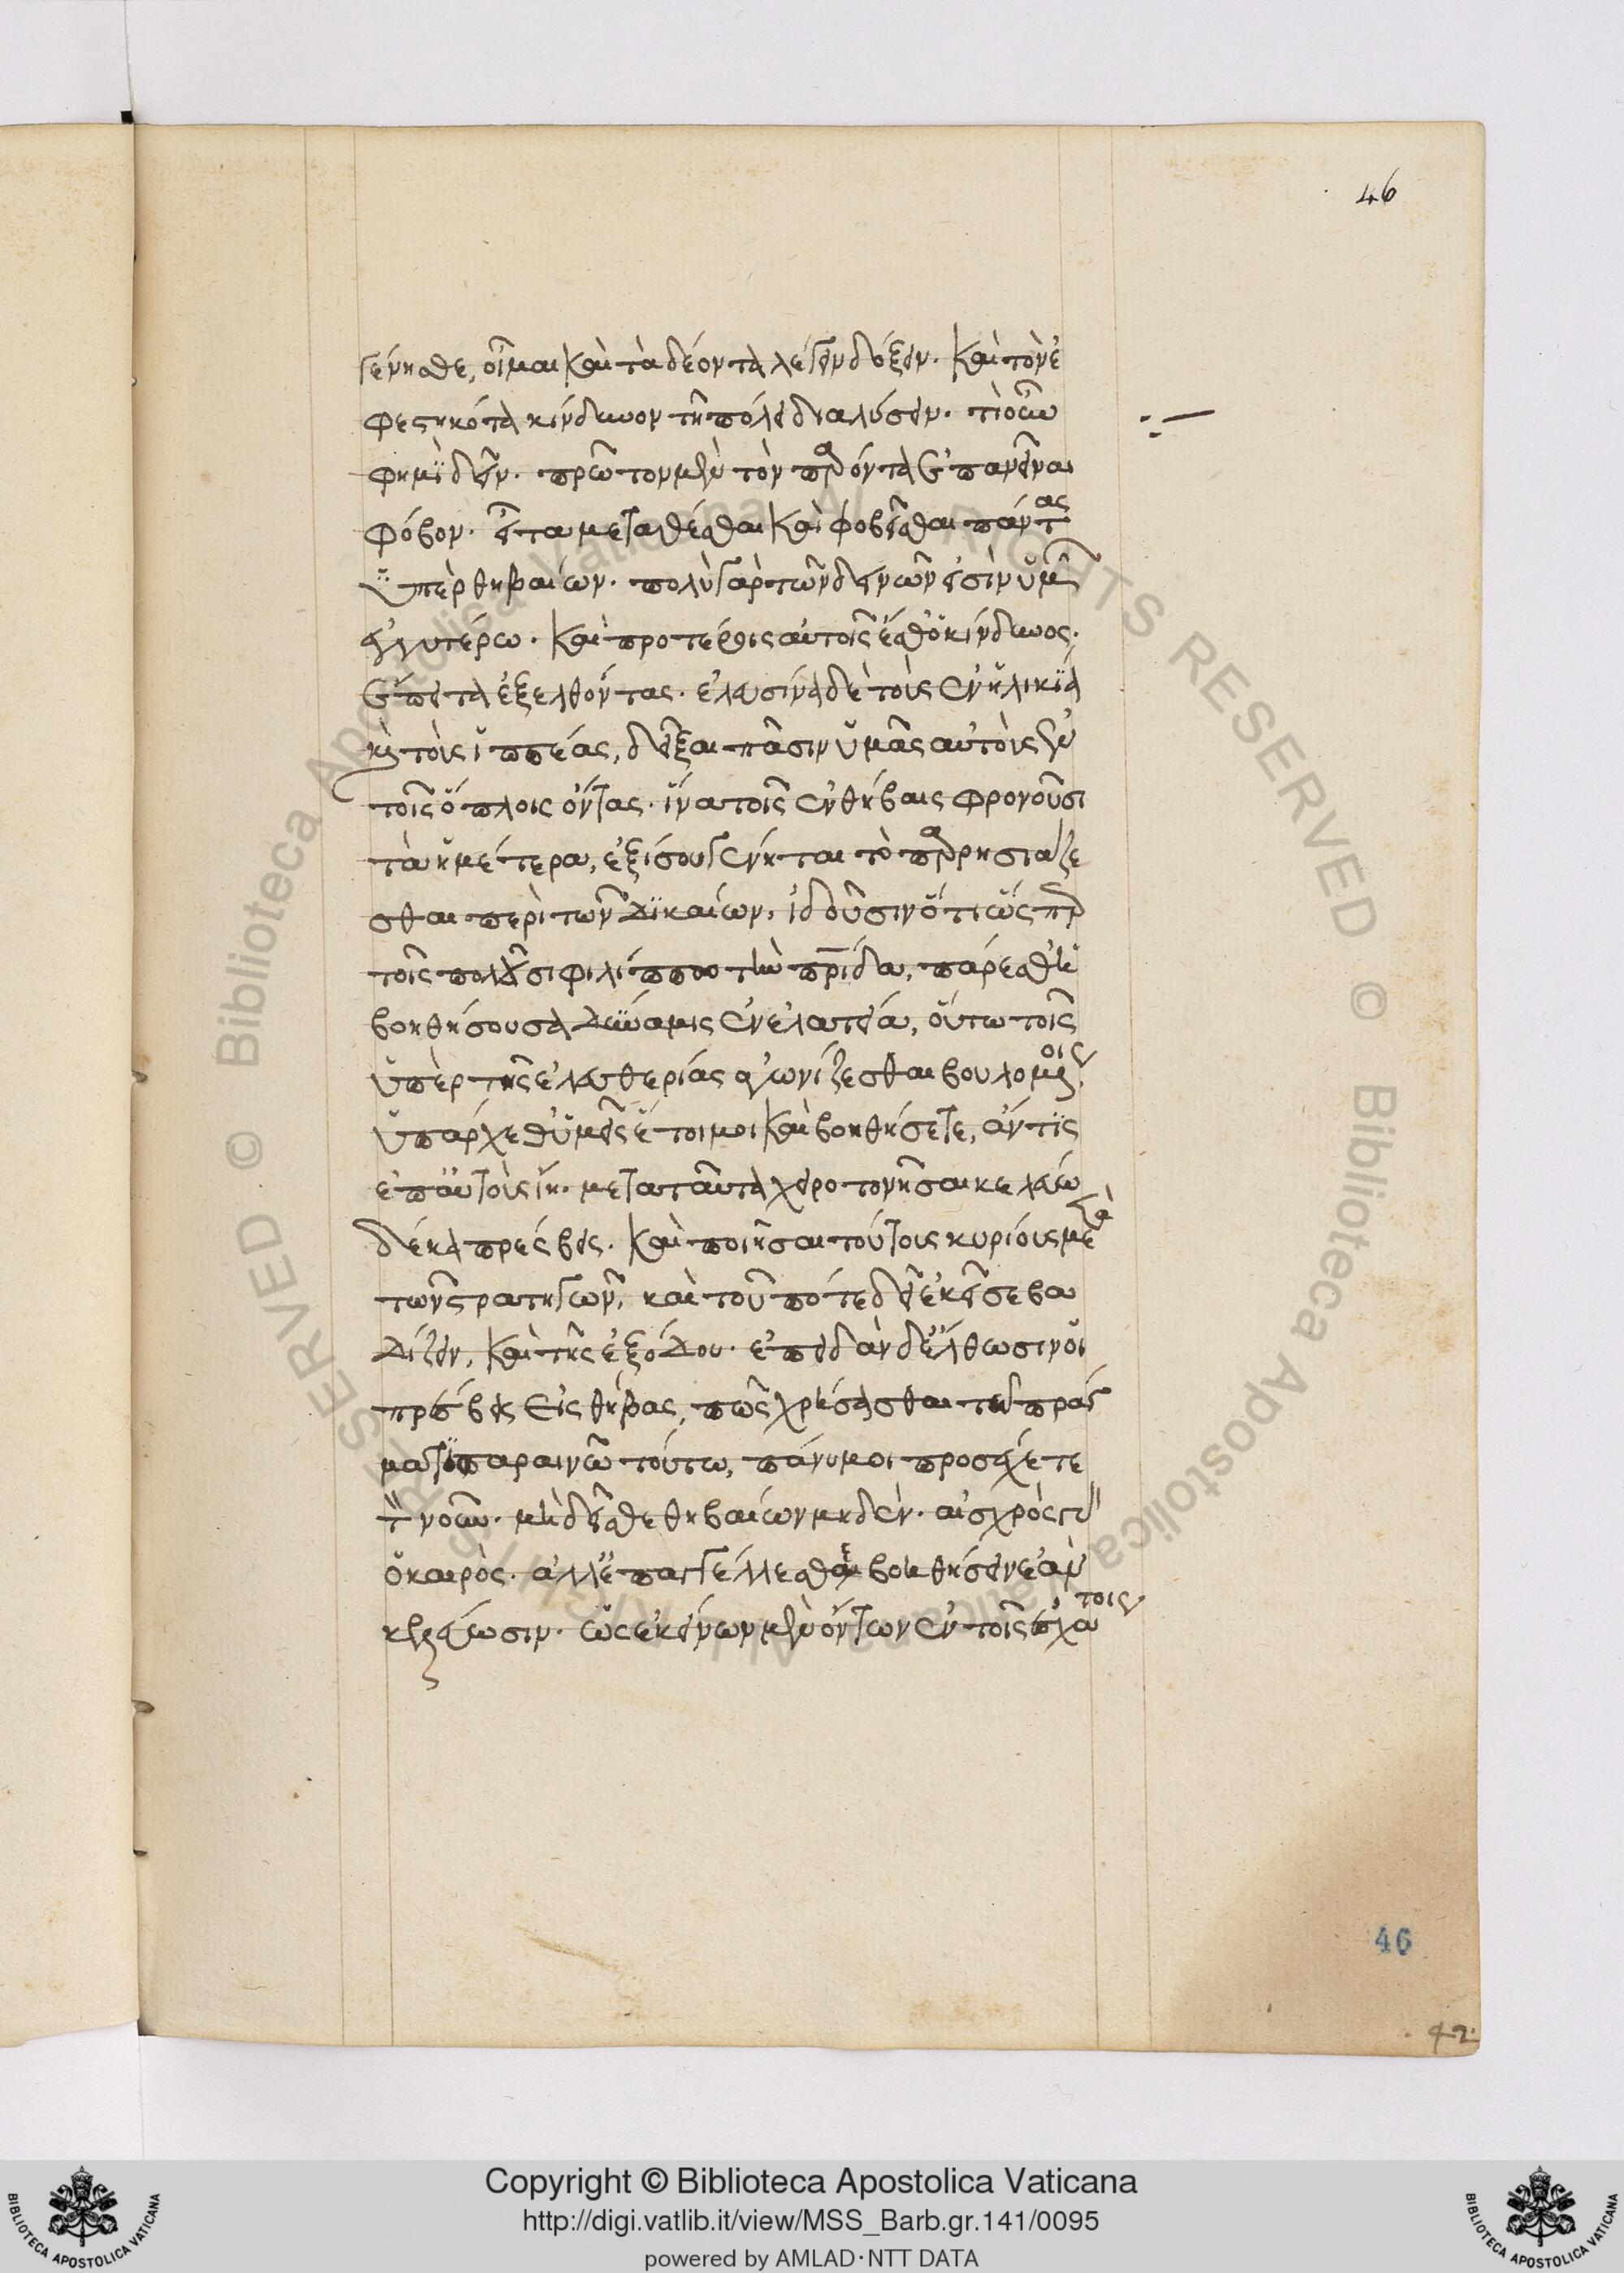 46
γένησθε, οἶμαι καὶ τὰ δέοντα λέγειν δόξειν. καὶ τὸν ἐ
φεστηκότα κίνδυνον τῆ πόλει διαλύσειν. τί οὖν
φημὶ δεῖν. πρῶτον μὲν τὸν παρόντα ἐπανεῖναι
φόβον. εἶτα μεταθέσθαι καὶ φοβεῖσθαι πάντας
ὑπὲρ θηβαίων. πολὺ γὰρ τῶν δεινῶν εἰσὶν ὑμῶν
ἐγγυτέρω. καὶ προτέροις αὐτοῖς ἐσθ' ὁ κίνδυνος.
ἔπειτα ἐξελθόντας. ἐλευσίναδε τοὺς ἐν ἡλικία
καὶ τοὺς ἱππέας, δεῖξαι πᾶσιν ὑμᾶς αὐτοὺς ἐν
τοῖς ὅπλοις ὄντας. ἵνα τοῖς ἐν θήβαις φρονοῦσι
τὰ ἡμέτερα, ἐξίσου γένηται τὸ παρρησιάζε
σθαι περὶ τῶν δικαίων, ἰδοῦσιν ὅτι ὥσπερ
τοῖς πωλοῦσι φιλίππω τὴν πατρίδα, πάρεσθ' ἡ
βοηθήσουσα δύναμις ἐν ἐλατεία, οὕτω τοῖς
ὑπὲρ τῆς ἐλευθερίας ἀγωνίζεσθαι βουλομένοις.
ὑπάρχεθ' ὑμεῖς ἕτοιμοι καὶ βοηθήσετε, ἄν τις
ἐπ' αὐτοὺς ἴη. μετὰ ταῦτα χειροτονῆσαι κελεύω
δέκα πρέσβεις. καὶ ποιῆσαι τούτους κυρίους μετὰ
τῶν στρατηγῶν, καὶ τοῦ πότε δεῖ ἐκεῖσε βα
δίζειν, καὶ τῆς ἐξόδου. ἐπειδὰν δ' ἔλθωσιν οἱ
πρέσβεις εἰς θήβας, πῶς χρήσασθαι τῷ πράγ
ματι παραινῶ τούτω, πάνυ μοι προσέχετε
τὸν νοῦν. μὴ δεῖσθε θηβαίων μηδέν. αἰσχρὸς γὰρ
ὁ καιρὸς. ἀλλ' ἐπαγγέλλεσθαι βοηθήσειν ἐὰν
κελεύωσιν. ὡς ἐκείνων μὲν ὄντων ἐν τοῖς ἐσχάτοις
46
42.
Copyright © Biblioteca Apostolica Vaticana
http://digi.vatlib.it/view/MSS_Barb.gr.141/0095
powered by AMLAD·NTT DATA